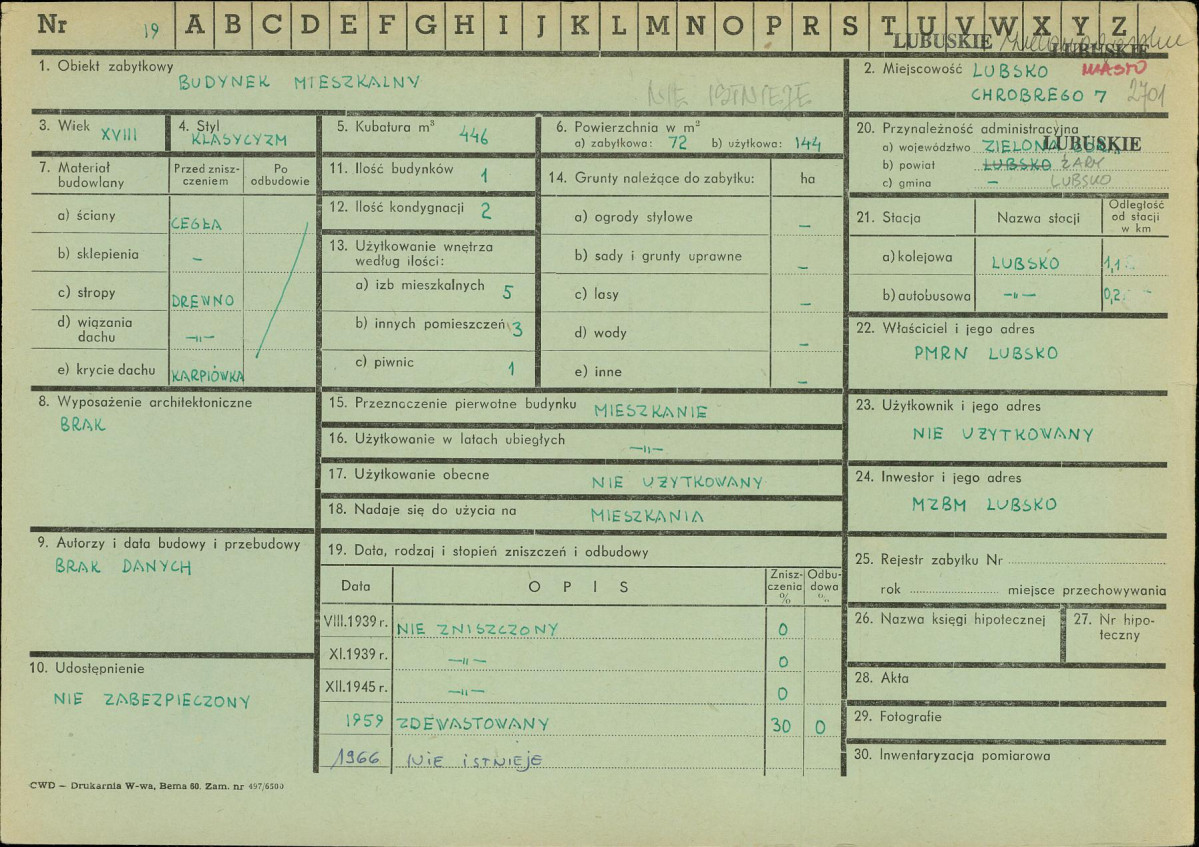 Nr 19 A B C D E F G H I J K L M N O P R S T U V W X Y Z
LUBUSKIE LUBUSKIE
1. Obiekt zabytkowy
BUDYNEK MIESZKALNY
NIE ISTNIEJE
2. Miejscowość LUBSKO MIASTO
CHROBREGO 7 2701
3. Wiek XVIII
4. Styl
KLASYCYZM
5. Kubatura m³ 446
6. Powierzchnia w m²
a) zabytkowa: 72 b) użytkowa: 144
20. Przynależność administracyjna
a) województwo ZIELONA LUBUSKIE
b) powiat LUBSKO ŻARY
c) gmina – LUBSKO
7. Materiał budowlany
Przed znisz-
czeniem
Po
odbudowie
a) ściany CEGŁA
b) sklepienia –
c) stropy DREWNO
d) wiązania
dachu –„–
e) krycie dachu KARPIÓWKA
11. Ilość budynków 1
12. Ilość kondygnacji 2
13. Użytkowanie wnętrza
według ilości:
a) izb mieszkalnych 5
b) innych pomieszczeń 3
c) piwnic 1
14. Grunty należące do zabytku: ha
a) ogrody stylowe –
b) sady i grunty uprawne –
c) lasy –
d) wody –
e) inne –
21. Stacja
Nazwa stacji
Odległość
od stacji
w km
a) kolejowa LUBSKO 1,1
b) autobusowa –„– 0,2
22. Właściciel i jego adres
PMRN LUBSKO
8. Wyposażenie architektoniczne
BRAK
15. Przeznaczenie pierwotne budynku MIESZKANIE
16. Użytkowanie w latach ubiegłych –„–
17. Użytkowanie obecne NIE UŻYTKOWANY
18. Nadaje się do użycia na MIESZKANIA
23. Użytkownik i jego adres
NIE UŻYTKOWANY
24. Inwestor i jego adres
MZBM LUBSKO
9. Autorzy i data budowy i przebudowy
BRAK DANYCH
19. Data, rodzaj i stopień zniszczeń i odbudowy
Data
OPIS
Znisz-
czenia
%
Odbu-
dowa
%
VIII.1939 r. NIE ZNISZCZONY 0
XI.1939 r. –„– 0
XII.1945 r. –„– 0
1959 ZDEWASTOWANY 30 0
1966 NIE ISTNIEJE
25. Rejestr zabytku Nr
rok miejsce przechowywania
26. Nazwa księgi hipotecznej
27. Nr hipo-
teczny
10. Udostępnienie
NIE ZABEZPIECZONY
28. Akta
29. Fotografie
30. Inwentaryzacja pomiarowa
CWD – Drukarnia W-wa, Bema 60. Zam. nr 497/6500